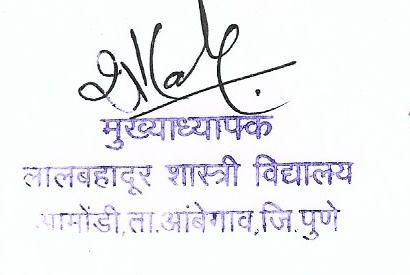 मुख्याध्यापक
लालबहादूर शास्त्री विद्यालय
ता.आंबेगाव,जि.पुणे